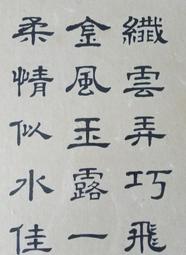 纖雲弄巧飛
金風玉露一
柔情似水佳